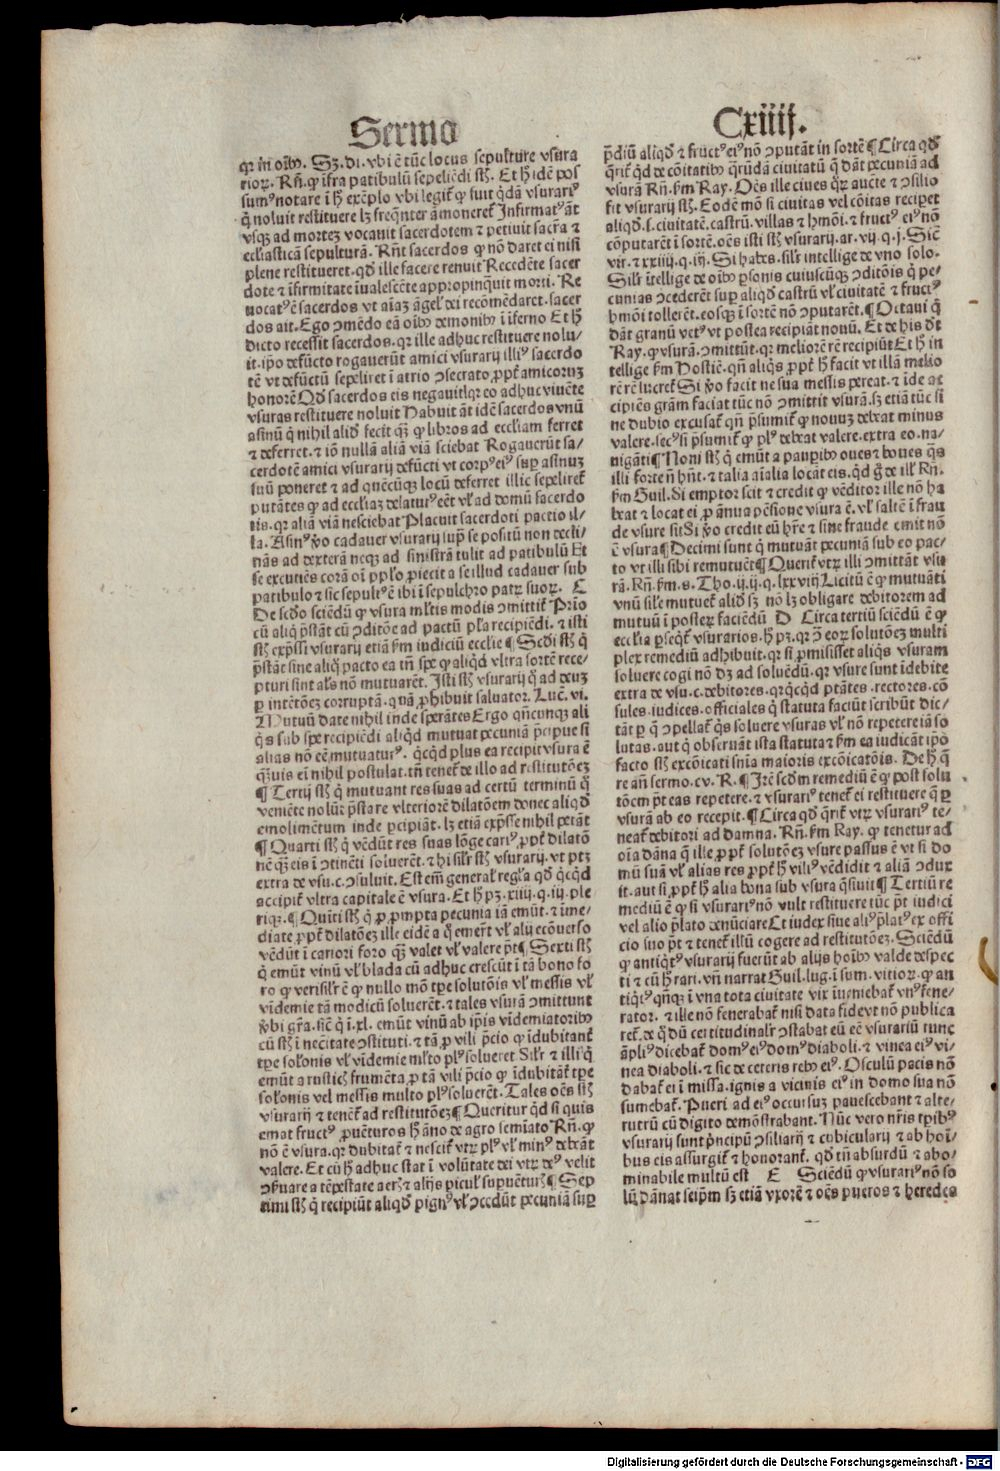 Sermo
qr in oīb9. Sꝫ. di. vbi ē tūc locus sepulture vsura
rioꝝ. Rn̄. ꝙ īfra patibulū sepeliēdi st̄. Et h̄ idē pos
sum9 notare ī h̄ exēplo vbi legit̄ ꝙ fuit q̄dā vsurari9
q̄ noluit restituere lꝫ freq̄nter āmoneret̄ Infirmat9 āt
vsqꝫ ad mortez vocauit sacerdotem ⁊ petiuit sacr̄a ⁊
ecclīasticā sepulturā. Rn̄t sacerdos ꝙ nō daret ei nisi
plene restitueret. qd̄ ille facere renuit Recedēte sacer
dote ⁊ īfirmitate īualescēte appropinq̄uit morti. Re
uocat9 ē sacerdos vt aīaz āgel9 dei recōmēdaret. sacer
dos ait. Ego ꝯmēdo eā oīb9 demonib9 ī īferno Et h̄
dicto recessit sacerdos. qr ille adhuc restituere nolu/
it. ip̄o defūcto rogauerūt amici vsurarij illi9 sacerdo
tē vt defūctū sepeliret ī atrio ꝯsecrato ꝓpt̄ amicorum
honorē Qd̄ sacerdos eis negauit qr eo adhuc viuēte
vsuras restituere noluit Habuit āt idē sacerdos vnū
asinū q̄ nihil alid̄ fecit q̄ꝫ ꝙ libros ad eccliam ferret
⁊ deferret. ⁊ iō nullā aliā viā sciebat Rogauerūt sa/
cerdotē amici vsurarij defūcti vt corp9 ei9 sup̄ asinuz
suū poneret ⁊ ad quēcūqꝫ locū deferret illic sepeliret̄
putātes ꝙ ad eccliaꝫ delatur9 eēt vl̄ ad domū sacerdo
tis. qr aliā viā nesciebat Placuit sacerdoti pactio il/
la. Asin9 v̄o cadauer vsurarij sup̄ se positū non decli/
nās ad dexterā neqꝫ ad sinistrā tulit ad patibulū Et
se excutiēs corā oī pp̄lo ꝓiecit a se illud cadauer sub
patibulo ⁊ sic sepult9 ē ibi ī sepulchro patꝝ suoꝝ. C
De scd̄o sciēdū ꝙ vsura ml̄tis modis ꝯmittit̄ Prīo
cū aliq̄ p̄stāt cū ꝯditōe ad pactū pl9a recipiēdi. ⁊ isti
st̄ exp̄ssi vsurarij etiā km̄ iudiciū ecclie ¶ Scd̄i st̄ q̄
p̄stāt sine aliq̄ pacto ea tn̄ spe ꝙ aliq̄d vltra sortē rece/
pturi sint al̄s nō mutuarēt. Isti st̄ vsurarij q̄ ad deuz
ꝑ intētōeꝫ corruptā. quā ꝓhibuit saluator. Luc̄. vi.
Mutuū date nihil inde sperātes Ergo qn̄cunqꝫ ali
q̄s sub spe recipiēdi aliq̄d mutuat pecuniā p̄cipue si
alias nō eēt mutuatur9. q̄cq̄d plus ea recipit vsura ē
q̄ꝫuis eī nihil postulat. tn̄ tenet̄ de illo ad restitutōeꝫ
¶ Tertij st̄ q̄ mutuant res suas ad certū terminū q̄
veniēte nolūt p̄stare vlteriorē dilatōem donec aliqd̄
emolimētum inde ꝑcipiāt. lꝫ etiā exp̄sse nihil petāt
¶ Quarti st̄ q̄ vēdūt res suas lōge cari9. ꝓpt̄ dilatō
nē q̄ꝫ eis ī ꝯtinēti soluerēt. ⁊ hi sil̄r st̄ vsurarij. vt ptꝫ
extra de vsu. c. ꝯsuluit. Est em̄ general̄ reḡla qd̄ q̄cq̄d
accipit̄ vltra capitale ē vsura. Et h̄ pꝫ. xiiij. q. iij. ple
riqꝫ. ¶ Quīti st̄ q̄ ꝓ ꝓmpta pecunia iā emūt. ⁊ īme/
diate ꝓpt̄ dilatōeꝫ ille eidē a q̄ emer̄t vl̄ alij ecōuerso
vēdūt ī cariori foro q̄ꝫ valet vl̄ valere p̄t ¶ Sexti st̄
q̄ emūt vinū vl̄ blada cū adhuc crescūt ī tā bono fo
ro ꝙ verisil̄r ē ꝙ nullo mō tp̄e solutōis vl̄ messis vl̄
vīdemie tā modicū soluerēt. ⁊ tales vsurā ꝯmittunt
v̄bi gr̄a. sic̄ q̄ ī. xl. emūt vinū ab ip̄is vīdemiatorib9
cū st̄ ī nec̄itate ꝯstituti. ⁊ tā ꝓ vili p̄cio ꝙ īdubitant̄
tp̄e sol̄onis vl̄ vīdemie ml̄to pl9 solueret Sil̄r ⁊ illi q̄
emūt a rustic9 frumēta ꝓ tā vili p̄cio ꝙ īdubitāt̄ tp̄e
sol̄onis vel messis multo pl9 soluerēt. Tales oēs st̄
vsurarij ⁊ tenēt̄ ad restitutōeꝫ ¶ Queritur q̄d si quis
emat fruct9 ꝓuēturos h̄ āno de agro semīato Rn̄. ꝙ
nō ē vsura. qr dubitat̄ ⁊ nescit̄ vtꝝ pl9 vl̄ min9 debeāt
valere. Et cū h̄ adhuc stat ī volūtate dei vtꝝ de9 velit
ꝯẜuare a tēpestate aer9 ⁊ alijs picul̄ supuētur9 ¶ Sep
timi st̄ q̄ recipiūt aliqd̄ pign9 vl̄ ꝯcedūt pecuniā sup̄
Cxiiij.
p̄diū aliqd̄ ⁊ fruct9 ei9 nō ꝯputāt in sortē ¶ Circa qd̄
q̄rit̄ q̄d de cōitatib9 q̄rūdā ciuitatū q̄ dāt pecuniā ad
vsurā Rn̄. km̄ Ray. Oēs ille ciues q̄ꝝ aucte ⁊ ꝯsilio
fit vsurarij st̄. Eodē mō si ciuitas vel cōitas recipet
aliqd̄. s. ciuitatē. castrū. villas ⁊ hmōi. ⁊ fruct9 ei9 nō
cōputarēt ī sortē. oēs isti st̄ vsurarij. ar. vij. q. j. Sic̄
vir. ⁊ xxiiij. q. iij. Si habes. sil̄r intellige de vno solo.
Sil̄r ītellige de oīb9 ꝑsonis cuiuscūqꝫ ꝯditōis q̄ pe/
cunias ꝯcederēt sup̄ aliqd̄ castrū vl̄ ciuitatē ⁊ fruct9
hmōi tollerēt. eosqꝫ ī sortē nō ꝯputarēt. ¶ Octaui q̄
dāt granū vet9 vt postea recipiāt nouū. Et de his d̄t
Ray. ꝙ vsurā. ꝯmittūt. qr meliorē rē recipiūt Et h̄ in
tellige km̄ Hostiē. qn̄ aliq̄s ꝓpt̄ h̄ facit vt illā melio
rē rē lucret̄ Si v̄o facit ne sua messis pereat. ⁊ īde ac
cipiēs gr̄am faciat tūc nō ꝯmittit vsurā. sꝫ etiā tūc si
ne dubio excusat̄ qn̄ p̄sumit̄ ꝙ nouuz debeat minus
valere. sec9 si p̄sumit̄ ꝙ pl9 debeat valere. extra eo. na/
nigāti ¶ Noni st̄ q̄ emūt a paupib9 oues ⁊ boues q̄s
illi forte n̄ hn̄t. ⁊ talia aīalia locāt eis. qd̄ g̊ de ill̄ Rn̄.
km̄ Guil. Si emptor scit ⁊ credit ꝙ vēditor ille nō ha
beat ⁊ locat ei ꝓ ānua pēsione vsura ē. vl̄ saltē ī frau
de vsure fit Si v̄o credit eū hr̄e ⁊ sine fraude emit nō
ē vsura ¶ Decimi sunt q̄ mutuāt pecuniā sub eo pac/
to vt illi sibi remutuēt ¶ Querit̄ vtꝝ illi ꝯmittāt vsu
rā. Rn̄. km̄. s. Tho. ij. ij. q. lxxviij Licitū ē ꝙ mutuāti
vnū sil̄e mutuet̄ alid̄ sꝫ nō lꝫ obligare debitorem ad
mutuū ī posterꝝ faciēdū D Circa tertiū sciēdū ē ꝙ
ecclia ꝑseq̄t̄ vsurarios. h̄ pꝫ. qr ꝯ eoꝝ solutōeꝫ multi
plex remediū adhibuit. qr si ꝓmisisset aliq̄s vsuram
soluere cogi nō dꝫ ad soluēdū. qr vsure sunt īdebite
extra de vsu. c. debitores. qr q̄cq̄d ptātes. rectores. cō
sules. iudices. officiales q̄ statuta faciūt scribūt dic/
tāt ꝑ q̄ ꝯpellat̄ q̄s soluere vsuras vl̄ nō repetere iā so
lutas. aut q̄ obseruāt ista statuta ⁊ km̄ ea iudicāt ip̄o
facto st̄ excōicati sn̄ia maioris excōicatōis. De h̄ q̄
re an̄ sermo. cv. R. ¶ Itē scd̄m remediū ē ꝙ post solu
tōem p̄t eas repetere. ⁊ vsurari9 tenet̄ ei restituere q̄ ꝑ
vsurā ab eo recepit. ¶ Circa qd̄ q̄rit̄ vtꝝ vsurari9 te/
neat̄ debitori ad damna. Rn̄. km̄ Ray. ꝙ tenetur ad
oīa dāna q̄ ille ꝓpt̄ solutōeꝫ vsure passus ē vt si do
mū suā vl̄ alias res ꝓpt̄ h̄ vili9 vēdidit ⁊ aliā ꝯdux
it. aut si ꝓpt̄ h̄ alia bona sub vsura q̄siuit ¶ Tertiū re
mediū ē ꝙ si vsurari9 nō vult restituere tūc p̄t iudici
vel alio p̄lato denūciare Et iudex siue ali9 p̄lat9 ex offi
cio suo p̄t ⁊ tenet̄ illū cogere ad restitutōeꝫ. Sciēdū
ꝙ antiq̄t9 vsurarij fuerūt ab alijs hoīb9 valde despec
ti ⁊ cū h̄ rari. vn̄ narrat Guil. lug. ī sum. vitioꝝ. ꝙ an
tiq̄t9 qn̄qꝫ ī vna tota ciuitate vix īueniebat̄ vn9 fene/
rator. ⁊ ille nō fenerabat̄ nisi data fide vt nō publica
ret̄. ⁊ q̄dū certitudinal̄r ꝯstabat eū eē vsurariū tunc
āpli9 dicebat̄ dom9 ei9 dom9 diaboli. ⁊ vinea ei9 vi/
nea diaboli. ⁊ sic de ceteris reb9 ei9. Osculū pacis nō
dabat̄ ei ī missa. ignis a vicinis ei9 in domo sua nō
sumebat̄. Pueri ad ei9 occursuz pauescebant ⁊ alte/
rutrū cū digito demōstrabant. Nūc vero nr̄is tpib9
vsurarij sunt p̄ncipū ꝯsiliarij ⁊ cubicularij ⁊ ab hoī/
bus eis assurgit̄ ⁊ honorant̄. qd̄ tn̄ absurdū ⁊ abo/
minabile multū est E Sciēdū ꝙ vsurari9 nō so
lū dānat seip̄m sꝫ etiā vxorē ⁊ oēs pueros ⁊ heredes
Digitalisierung gefördert durch die Deutsche Forschungsgemeinschaft - DFG